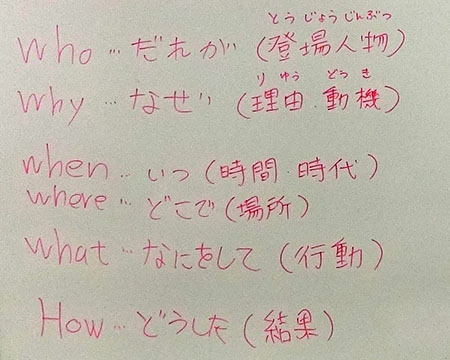 とうじょうじんぶつ
who…だれが(登場人物)
りゆう どうき
why…なぜ(理由・動機)
when…いつ(時間・時代)
where…どこで(場所)
what…なにをして(行動)
How…どうした(結果)